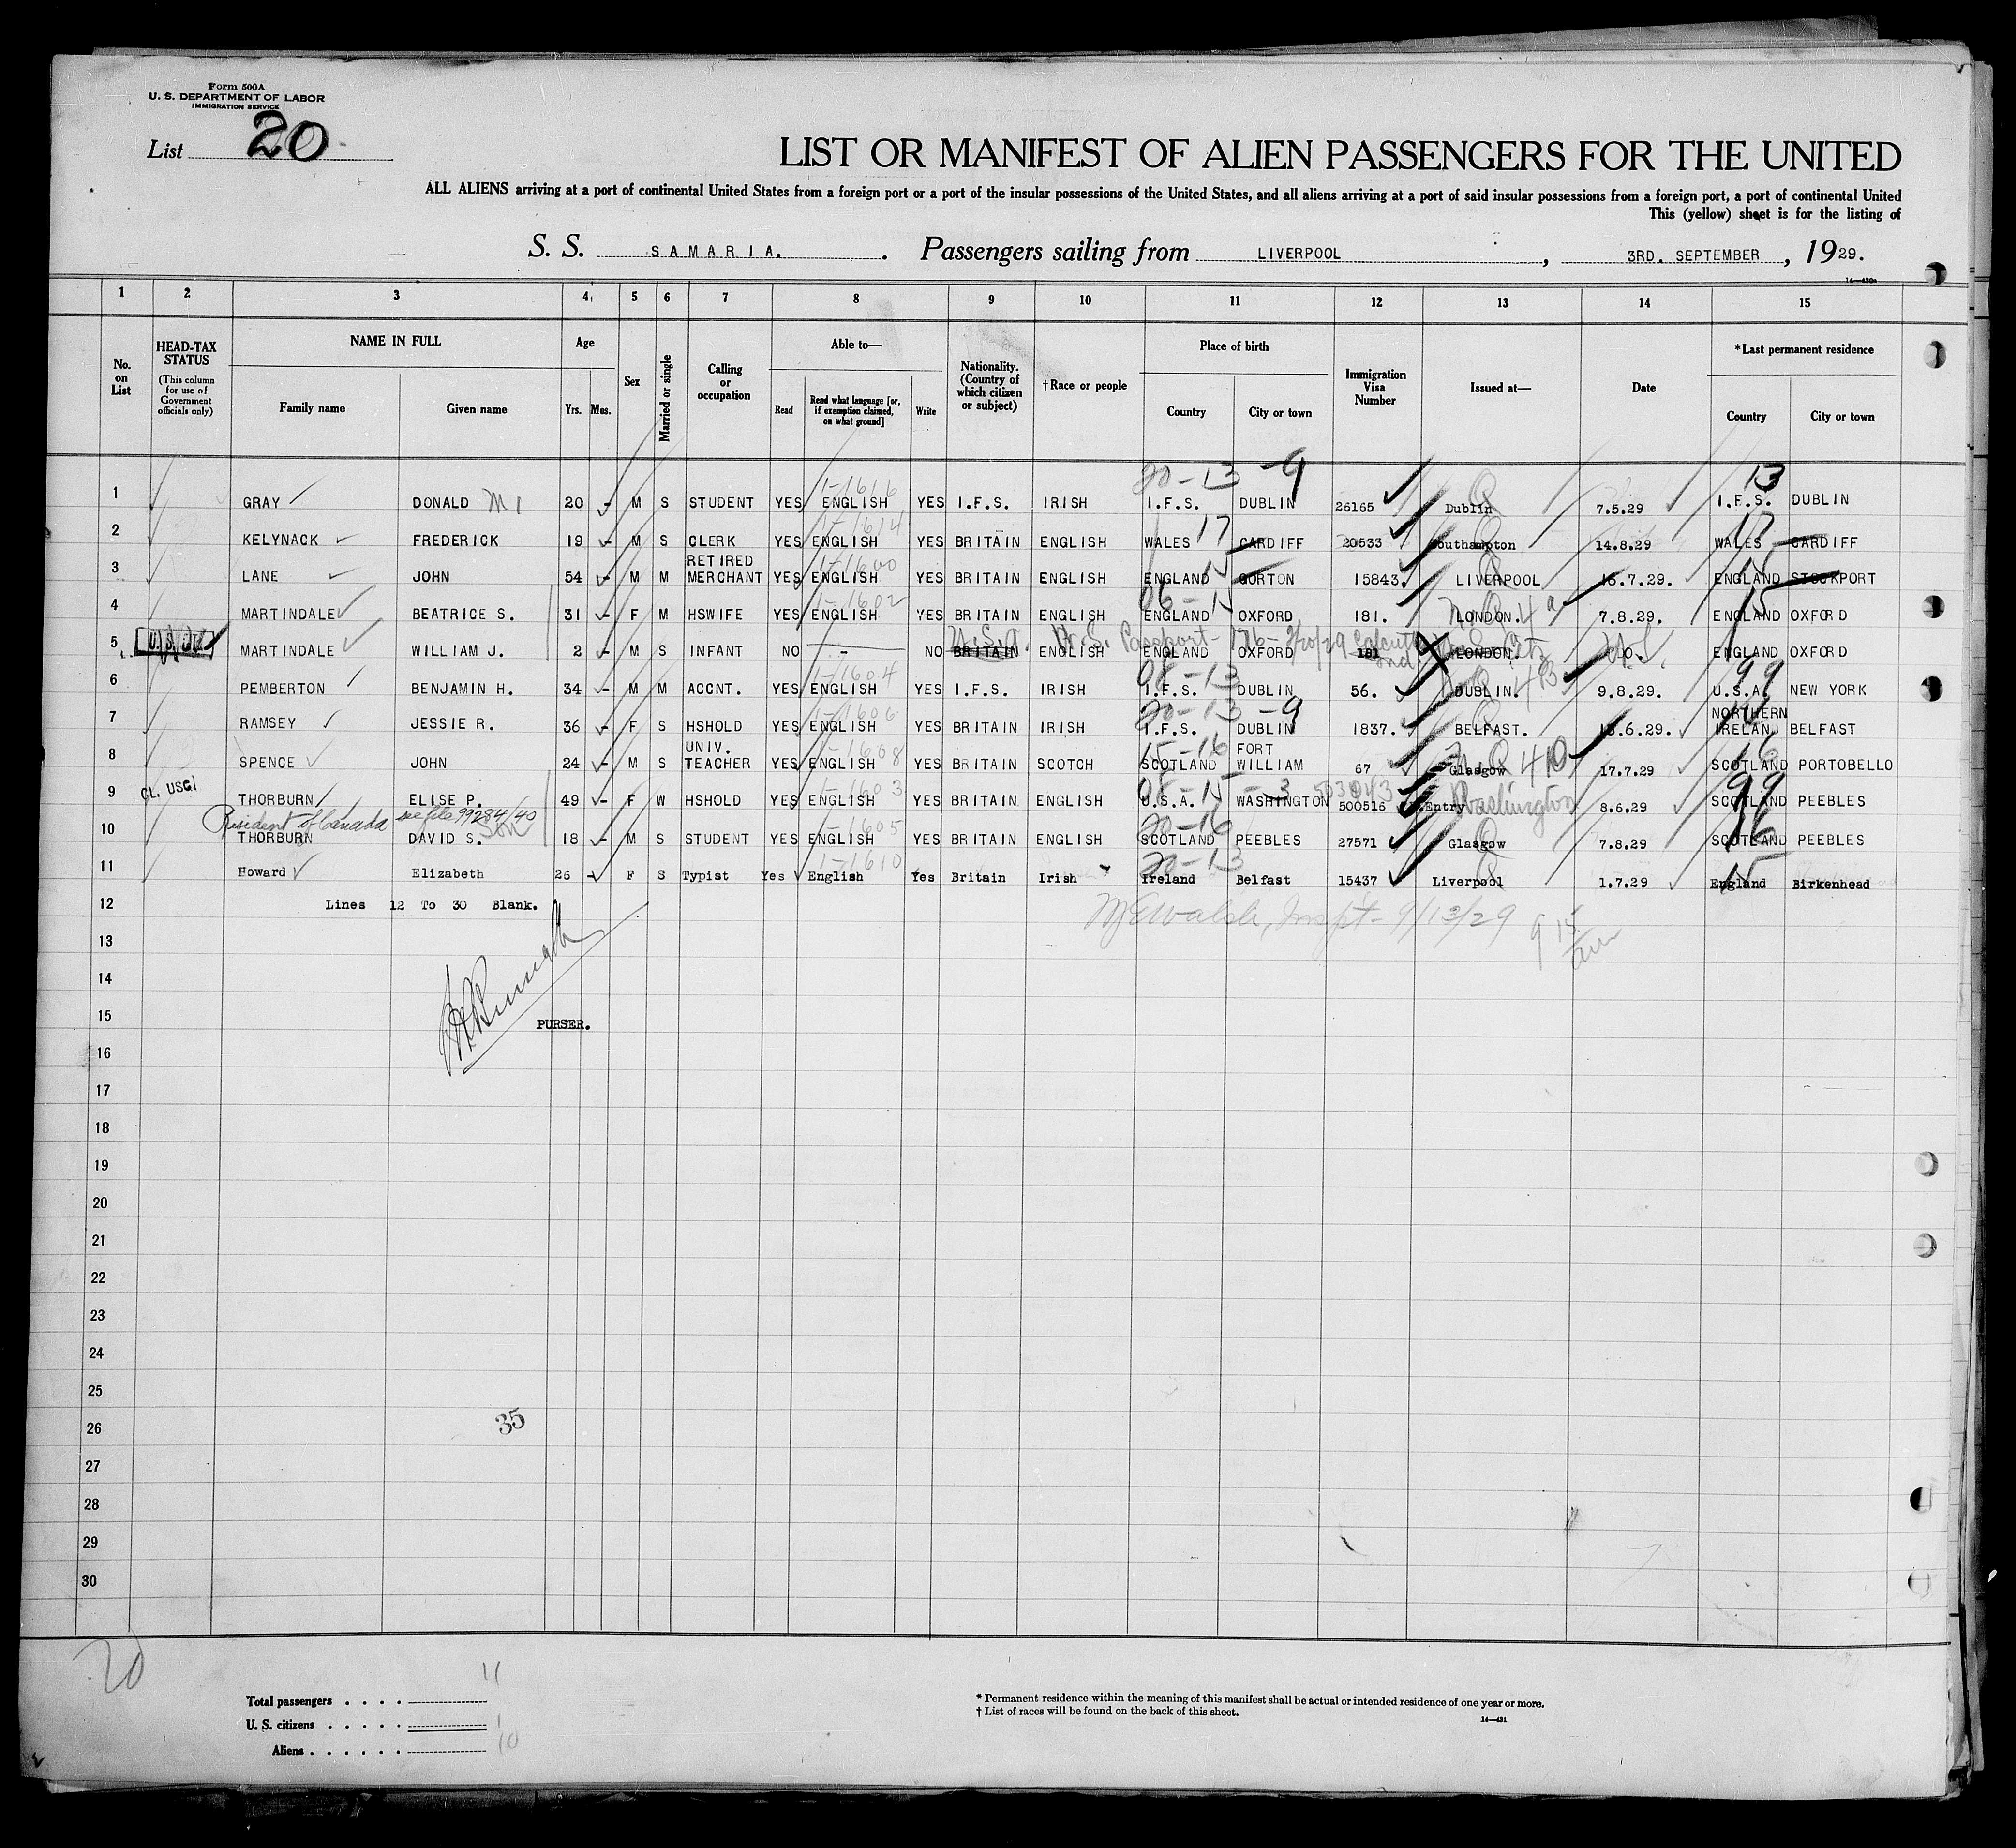 Form 500A
U. S. DEPARTMENT OF LABOR
IMMIGRATION SERVICE
List 20
LIST OR MANIFEST OF ALIEN PASSENGERS FOR THE UNITED
ALL ALIENS arriving at a port of continental United States from a foreign port or a port of the insular possessions of the United States, and all aliens arriving at a port of said insular possessions from a foreign port, a port of continental United
This (yellow) sheet is for the listing of
S. S. SAMARIA. Passengers sailing from LIVERPOOL, 3RD. SEPTEMBER, 1929.
1 2 3 4 5 6 7 8 9 10 11 12 13 14 15
No. on List
HEAD-TAX STATUS (This column for use of Government officials only)
NAME IN FULL
Family name Given name
Age
Yrs. Mos.
Sex
Married or single
Calling or occupation
Able to—
Read
Read what language [or, if exemption claimed, on what ground]
Write
Nationality. (Country of which citizen or subject)
†Race or people
Place of birth
Country City or town
Immigration Visa Number
Issued at—
Date
*Last permanent residence
Country City or town
20-13 -9 13
1-1616
1 GRAY DONALD M 1 20 - M S STUDENT YES ENGLISH YES I.F.S. IRISH I.F.S. DUBLIN 26165 Dublin Q 7.5.29 I.F.S. DUBLIN
1-1614
2 KELYNACK FREDERICK 19 - M S CLERK YES ENGLISH YES BRITAIN ENGLISH WALES 17 CARDIFF 20533 Southampton Q 14.8.29 WALES 17 CARDIFF
1-1600
3 LANE JOHN 54 - M M RETIRED MERCHANT YES ENGLISH YES BRITAIN ENGLISH ENGLAND 15 GORTON 15843. LIVERPOOL Q 15.7.29. ENGLAND 15 STOCKPORT
1-1602 06-15
4 MARTINDALE BEATRICE S. 31 - F M HSWIFE YES ENGLISH YES BRITAIN ENGLISH ENGLAND OXFORD 181. LONDON. N.Q. 4 a 7.8.29. ENGLAND 15 OXFORD
U.S. Passport- 176- 2/20/29 Calcutta Ind
5 MARTINDALE WILLIAM J. 2 - M S INFANT NO - NO U.S.A. BRITAIN ENGLISH ENGLAND OXFORD 181 LONDON. ENGLAND OXFORD
1-1604 08-13 99
6 PEMBERTON BENJAMIN H. 34 - M M ACCNT. YES ENGLISH YES I.F.S. IRISH I.F.S. DUBLIN 56. DUBLIN. 4B 9.8.29. U.S.A. NEW YORK
1-1606 20-13 -9
7 RAMSEY JESSIE R. 36 - F S HSHOLD YES ENGLISH YES BRITAIN IRISH I.F.S. DUBLIN 1837. BELFAST. Q 18.6.29. NORTHERN IRELAND BELFAST
1-1608 15-16 16
8 SPENCE JOHN 24 - M S UNIV. TEACHER YES ENGLISH YES BRITAIN SCOTCH SCOTLAND FORT WILLIAM 67 Glasgow N.Q 4D 17.7.29 SCOTLAND PORTOBELLO
CL. USCI
1-1603 08-15 -3 503043 99
9 THORBURN ELISE P. 49 - F W HSHOLD YES ENGLISH YES BRITAIN ENGLISH U.S.A. WASHINGTON 500516 R.Entry Washington 8.6.29 SCOTLAND PEEBLES
Resident of Canada see file 99284/40
Son 1-1605 20-16 16
10 THORBURN DAVID S. 18 - M S STUDENT YES ENGLISH YES BRITAIN ENGLISH SCOTLAND PEEBLES 27571 Glasgow Q 7.8.29 SCOTLAND PEEBLES
1-1610 20-13
11 Howard Elizabeth 26 - F S Typist Yes English Yes Britain Irish Ireland Belfast 15437 Liverpool Q 1.7.29 England 15 Birkenhead
12 Lines 12 To 30 Blank.
M E Walsh, Inspt- 9/13/29 9 15 am
13
14
15
PURSER.
16
17
18
19
20
21
22
23
24
25
26
35
27
28
29
30
20
Total passengers . . . . 11
U. S. citizens . . . . . 1
Aliens . . . . . . 10
* Permanent residence within the meaning of this manifest shall be actual or intended residence of one year or more.
† List of races will be found on the back of this sheet.
14—431